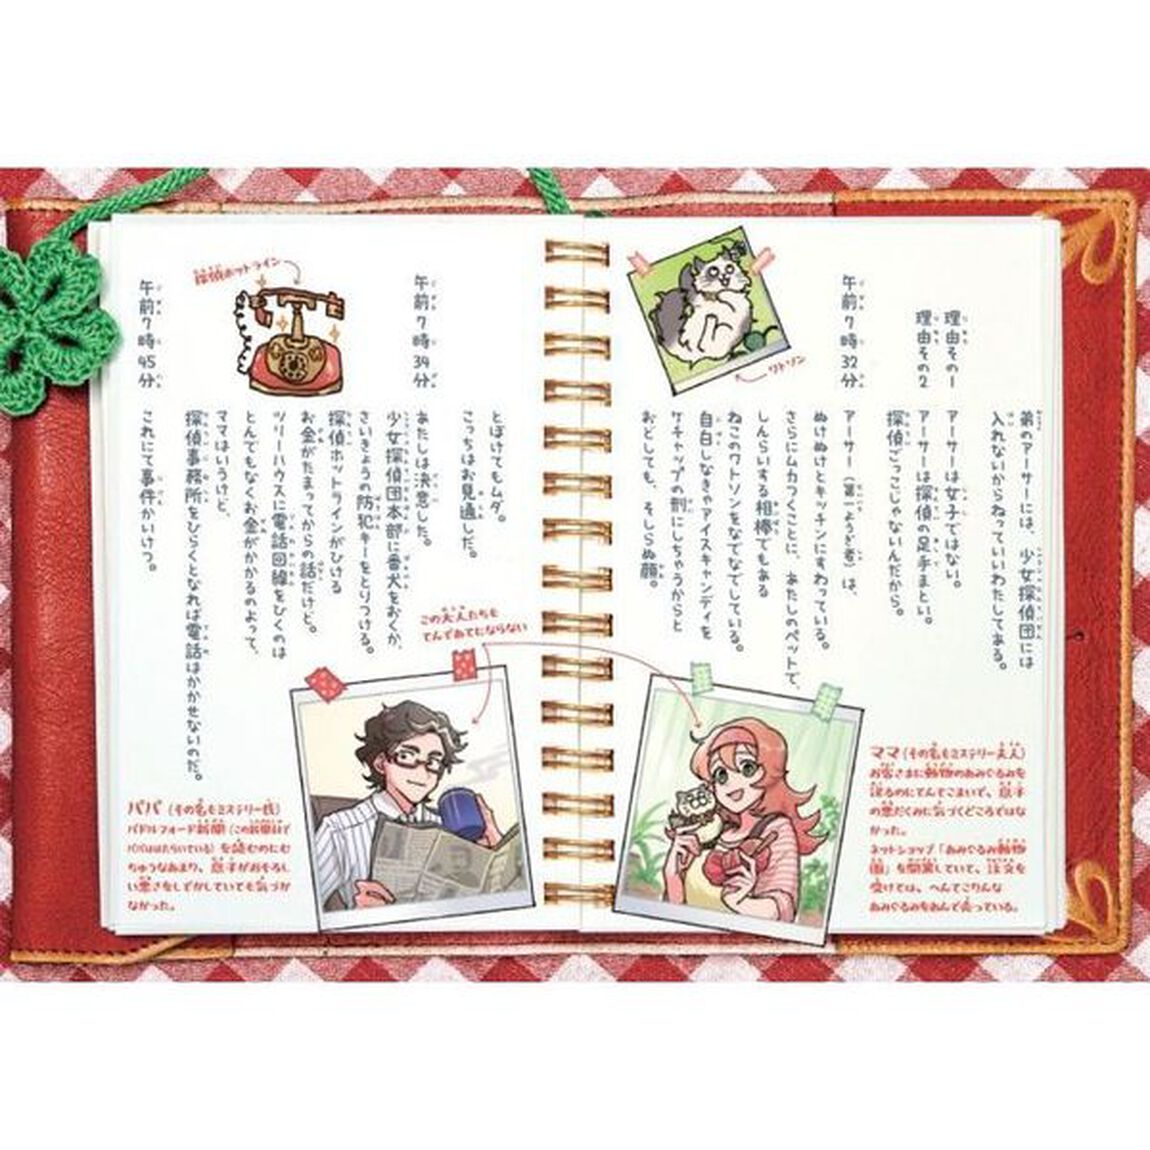 弟のアーサーには、少女探偵団には
入れないからねっていいわたしてある。
理由その1 アーサーは女子ではない。
理由その2 アーサーは探偵の足手まとい。
探偵ごっこじゃないんだから。
午前7時32分 アーサー(第一ようぎ者)は、
ぬけぬけとキッチンにすわっている。
さらにムカつくことに、あたしのペットで、
しんらいする相棒でもある
ねこのワトソンをなでなでしている。
自白しなきゃアイスキャンディを
ケチャップの刑にしちゃうからと
おどしても、そしらぬ顔。
ワトソン
ママ(その名もミステリー夫人)
お客さまに動物のあみぐるみを
送るのにてんてこまいで、息子
の悪だくみに気づくどころではな
かった。
ネットショップ「あみぐるみ動物
園」を開業していて、注文を
受けては、へんてこりんな
あみぐるみをあんで売っている。
とぼけてもムダ。
こっちはお見通しだ。
午前7時34分 あたしは決意した。
少女探偵団本部に番犬をおくか、
さいきょうの防犯キーをとりつける。
探偵ホットラインがひける
お金がたまってからの話だけど。
ツリーハウスに電話回線をひくのは
とんでもなくお金がかかるのよって、
ママはいうけど、
探偵事務所をひらくとなれば電話はかかせないのだ。
午前7時45分 これにて事件かいけつ。
探偵ホットライン
この大人たちも
てんであてにならない
パパ(その名もミステリー氏)
パドルフォード新聞(この新聞社で
パパははたらいている)を読むのにむ
ちゅうなあまり、息子がおそろし
い悪さをしでかしていても気づか
なかった。